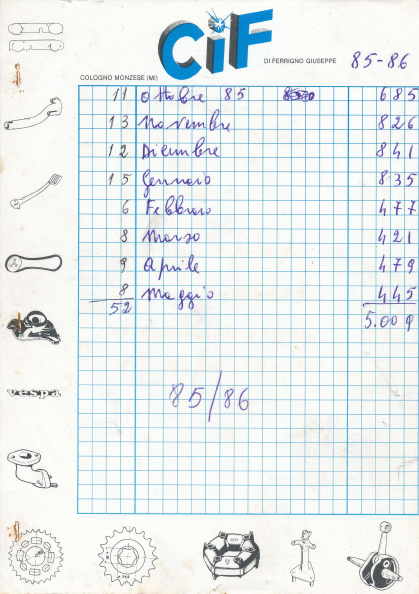 CiF
DI FERRIGNO GIUSEPPE
85-86
COLOGNO MONZESE (MI)
11 Ottobre 85 685
13 Novembre 826
12 Dicembre 841
15 Gennaio 835
6 Febbraio 477
8 Marzo 421
9 Aprile 479
8 Maggio 445
52 5.009
vespa
85/86